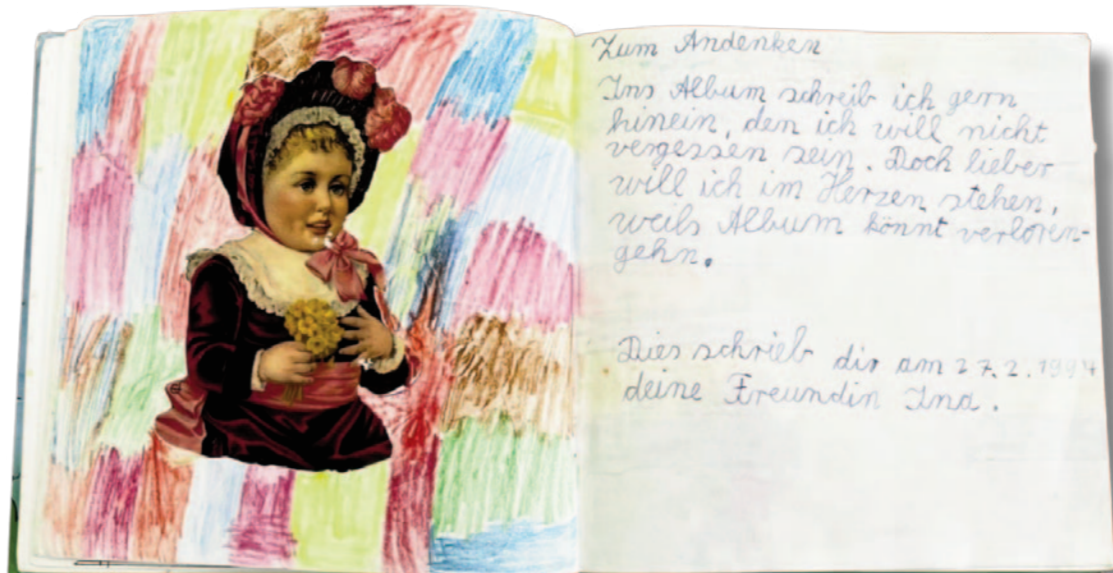 Zum Andenken
Ins Album schreib ich gern
hinein, den ich will nicht
vergessen sein. Doch lieber
will ich im Herzen stehen,
weils Album könnt verloren-
gehn.
Dies schrieb dir am 27.2.1994
deine Freundin Ina.